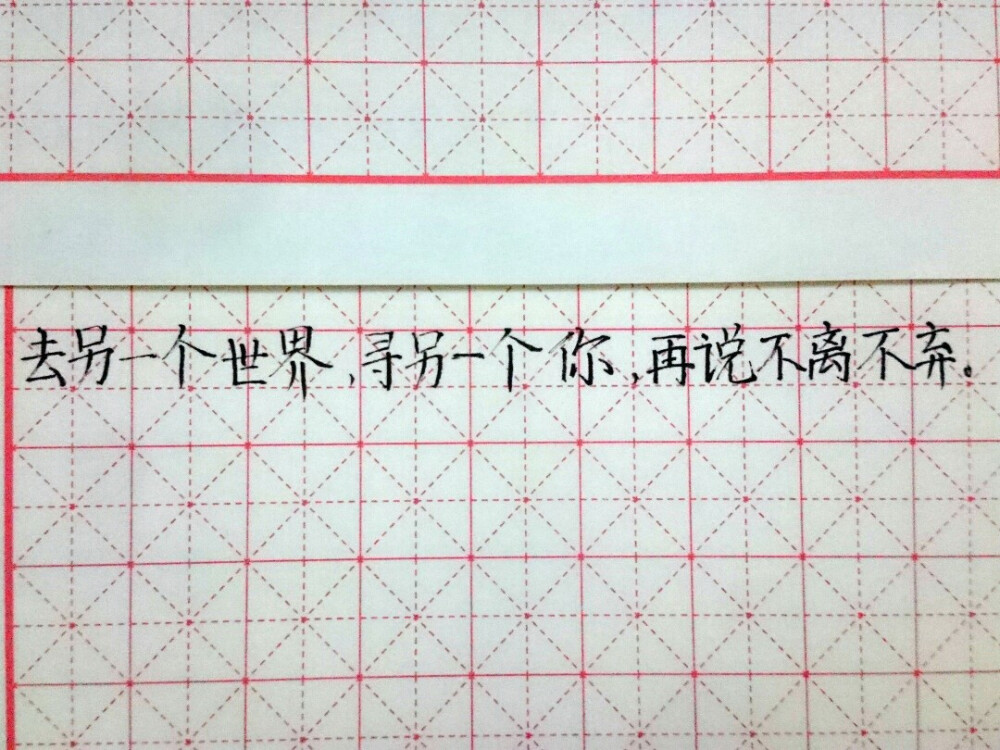 去另一个世界,寻另一个你,再说不离不弃.